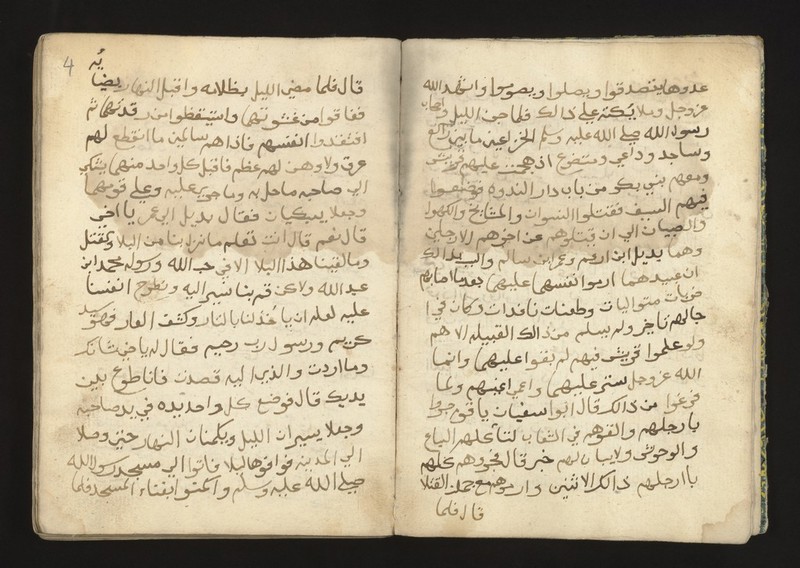 عدوها يتصدقوا ويصلوا ويصوموا واشهد الله
عز وجل وملا يكته على ذالك فلما جن الليل واصحاب
رسول الله صلى الله عليه وسلم الخزاعين ما بين راكع
وساجد وداعي ومتضرع اذ هجمت عليهم قريش
ومعهم بني بكر من باب دار الندوه فوضعوا
فيهم السيف فقتلوا النسوان والمشايخ والكهوا
والصبيان الى ان قتلوهم عن اخرهم الا رجلين
وهما بديل ابن وعمر ابن سالم
ان عبيد هما ارموا نفسهما عليهما بعد ما اصابهم
ضربات متواليات وطعنات نافدات وكان في ا
جالهم تاخير ولم يسلم من ذالك القبيله الا هم
ولو علموا قريش فيهم لم يبقوا عليهما وانما
الله عز وجل ستر عليهما واعمى اعينهم ولما
فرغوا من ذالك قال ابوا سفيان يا قوم جروا
بارجلهم والقوهم في الشعاب لتا كلهم السباع
والوحوش ولا يبان لهم خبر قال فجروهم كلهم
باارجلهم ذالك الاثنين وارموهم مع جملة القتلا
قال فلما
4
قال فلما مضى الليل بظلامه واقبل النهار بضيا يه
ففاقوا من غشوتهما واستيقظوا من رقدتهما ثم
افتقدوا انفسهم فاذا هم سالمين ما انقطع لهم
عرق ولا وهن لهم عظم فاقبل كل واحد منهما يشكي
الى صاحبه ما حل به وما جرى عليه وعلى قومهما
وجعلا يبكيان فقال بديل الى عمر يا اخي
قال نعم قال انت تعلم ما نزل بنا من البلا والقتل
وما لقينا هذا البلا الا في حب الله ورسوله محمد ابن
عبد الله ولاكن قم بنا نسير اليه ونطرح انفسنا
عليه لعله ان يا خذ لنا بالثار وكشف العار فهو سيد
كريم ورسول رب رحيم فقال له يا اخي شانك
وما اردت والذي اليه قصدت فانا طوع بين
يديك قال فوضع كل واحد يده في يد صاحبه
وجعلا يسيران الليل ويكمنان النهار حتى وصلا
الى المدينه فوافوها ليلا فاتوا الى مسجد رسول الله
صلى الله عليه وسلم واكمنوا بفناء المسجد فلما